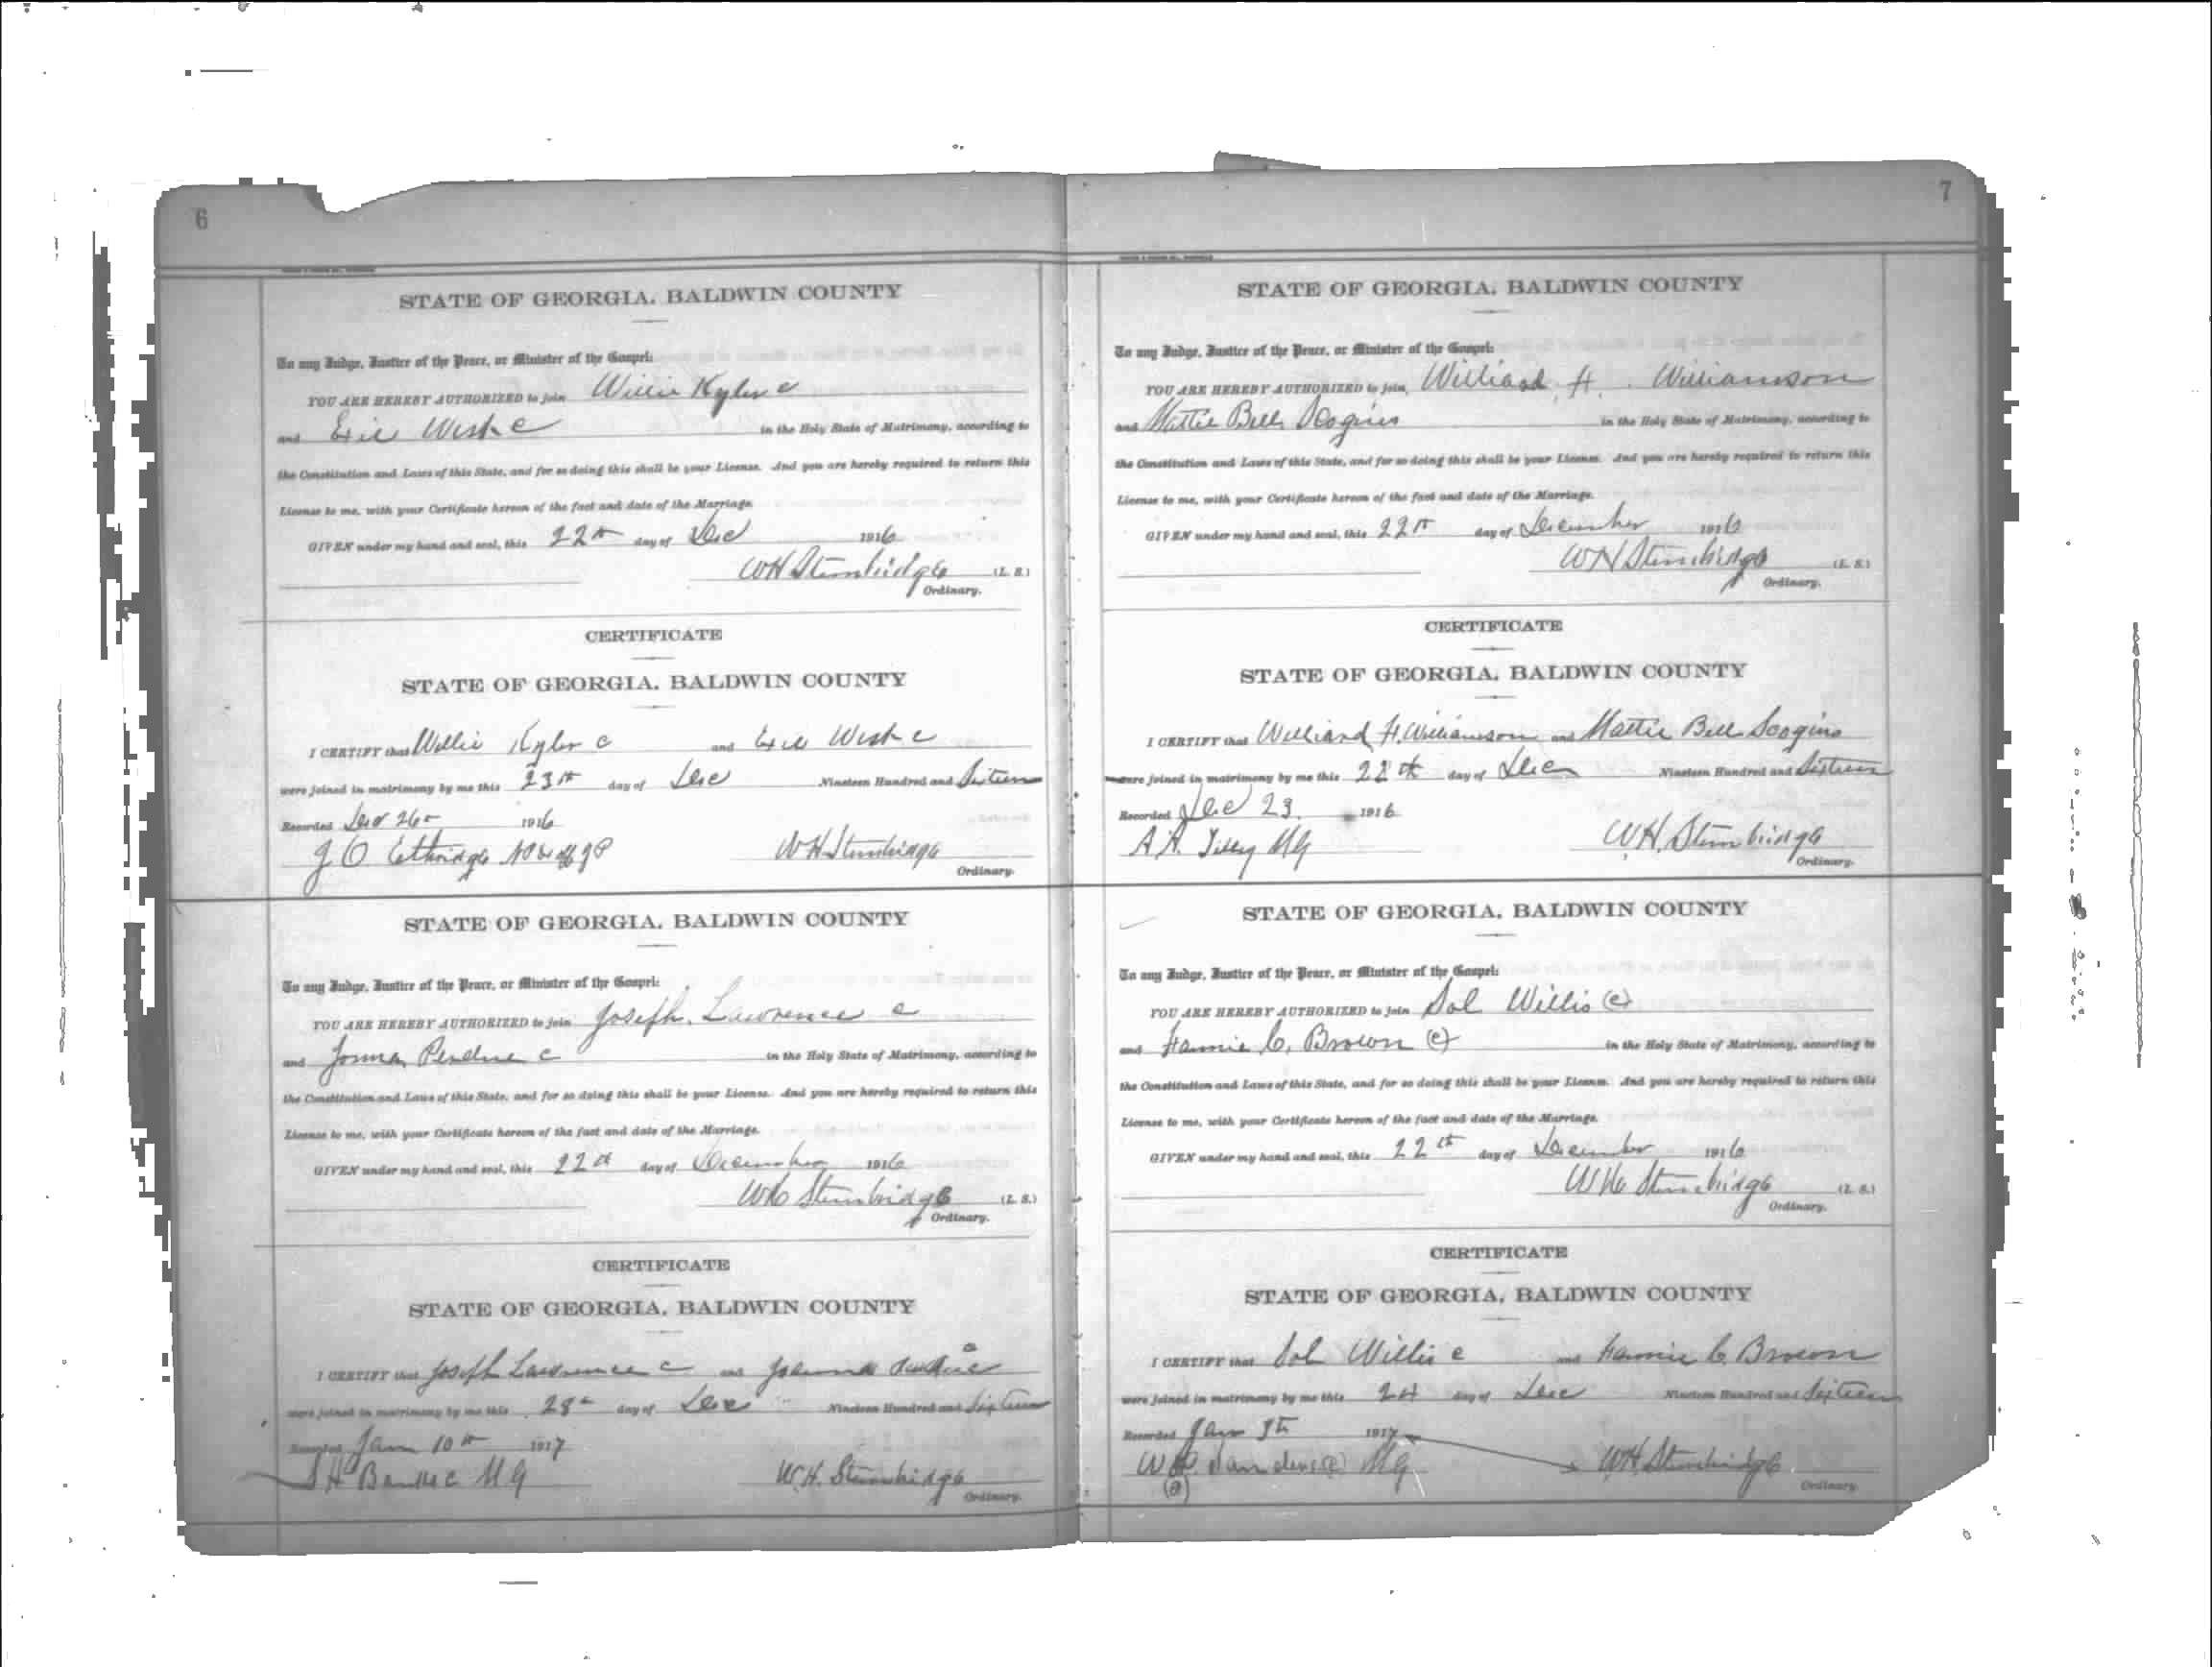 6
STATE OF GEORGIA, BALDWIN COUNTY
To any Judge, Justice of the Peace, or Minister of the Gospel:
YOU ARE HEREBY AUTHORIZED to join Willie Kyler c
and West c in the Holy State of Matrimony, according to
the Constitution and Laws of this State, and for so doing this shall be your License. And you are hereby required to return this
License to me, with your Certificate hereon of the fact and date of the Marriage.
GIVEN under my hand and seal, this 22th day of Dec 1916
WH Stembridge (L. S.)
Ordinary.
CERTIFICATE
STATE OF GEORGIA, BALDWIN COUNTY
I CERTIFY that Willie Kyler c and West c
were joined in matrimony by me this 23th day of Dec Nineteen Hundred and Sixteen
Recorded Dec 26 1916
J O Ethridge WH Stembridge
Ordinary.
STATE OF GEORGIA, BALDWIN COUNTY
To any Judge, Justice of the Peace, or Minister of the Gospel:
YOU ARE HEREBY AUTHORIZED to join Joseph Lawrence c
and Perdue c in the Holy State of Matrimony, according to
the Constitution and Laws of this State, and for so doing this shall be your License. And you are hereby required to return this
License to me, with your Certificate hereon of the fact and date of the Marriage.
GIVEN under my hand and seal, this 22th day of December 1916
WH Stembridge (L. S.)
Ordinary.
CERTIFICATE
STATE OF GEORGIA, BALDWIN COUNTY
I CERTIFY that Joseph Lawrence c and Perdue c
were joined in matrimony by me this 28 day of Dec Nineteen Hundred and Sixteen
Recorded Jan 10th 1917
S H c M G W.H. Stembridge
Ordinary.
7
STATE OF GEORGIA, BALDWIN COUNTY
To any Judge, Justice of the Peace, or Minister of the Gospel:
YOU ARE HEREBY AUTHORIZED to join Williard H. Williamson
and Mattie Bell Scogins in the Holy State of Matrimony, according to
the Constitution and Laws of this State, and for so doing this shall be your License. And you are hereby required to return this
License to me, with your Certificate hereon of the fact and date of the Marriage.
GIVEN under my hand and seal, this 22th day of December 1916
WH Stembridge (L. S.)
Ordinary.
CERTIFICATE
STATE OF GEORGIA, BALDWIN COUNTY
I CERTIFY that Williard H. Williamson and Mattie Bell Scogins
were joined in matrimony by me this 22th day of Dec Nineteen Hundred and Sixteen
Recorded Dec 23 1916
A.A. Tilly MG W.H. Stembridge
Ordinary.
STATE OF GEORGIA, BALDWIN COUNTY
To any Judge, Justice of the Peace, or Minister of the Gospel:
YOU ARE HEREBY AUTHORIZED to join Sol Willis (c)
and Fannie C. Brown (c) in the Holy State of Matrimony, according to
the Constitution and Laws of this State, and for so doing this shall be your License. And you are hereby required to return this
License to me, with your Certificate hereon of the fact and date of the Marriage.
GIVEN under my hand and seal, this 22th day of December 1916
WH Stembridge (L. S.)
Ordinary.
CERTIFICATE
STATE OF GEORGIA, BALDWIN COUNTY
I CERTIFY that Sol Willis c and Fannie C. Brown
were joined in matrimony by me this 24 day of Dec Nineteen Hundred and Sixteen
Recorded Jan 1917
MG WH Stembridge
Ordinary